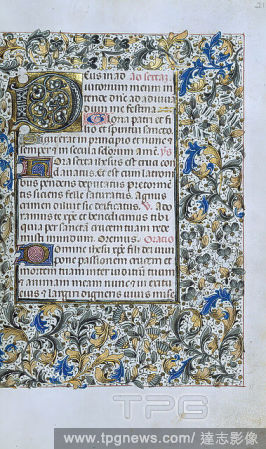 eus in ad Ad sextam
iutorium meum in
tende dne ad adiuva
dum me festina
Gloria patri et fi
lio et spiritui sancto
Sicut erat in principio et nunc et
semper et in secula seculorum amē. ys
Hora sexta ihesus est cruci con
clavatus. et est cum latroni
bus pendens deputatus pre torme
tis siciens felle saturatus. Agnus
crimen diluit sic
V. Ado
ramus te xpe et benedicimus tibi
qui per sanctā crucem tuam rede
misti mundum. Oremus. Oratio
Domine ihesu xpe fili dei vivi
pone passionem crucem et
mortem tuam inter iudiciū tuum
et animam meam nunc et in
et largiri digneris vivis mise
21
TPG
www.tpgnews.com / 達志影像